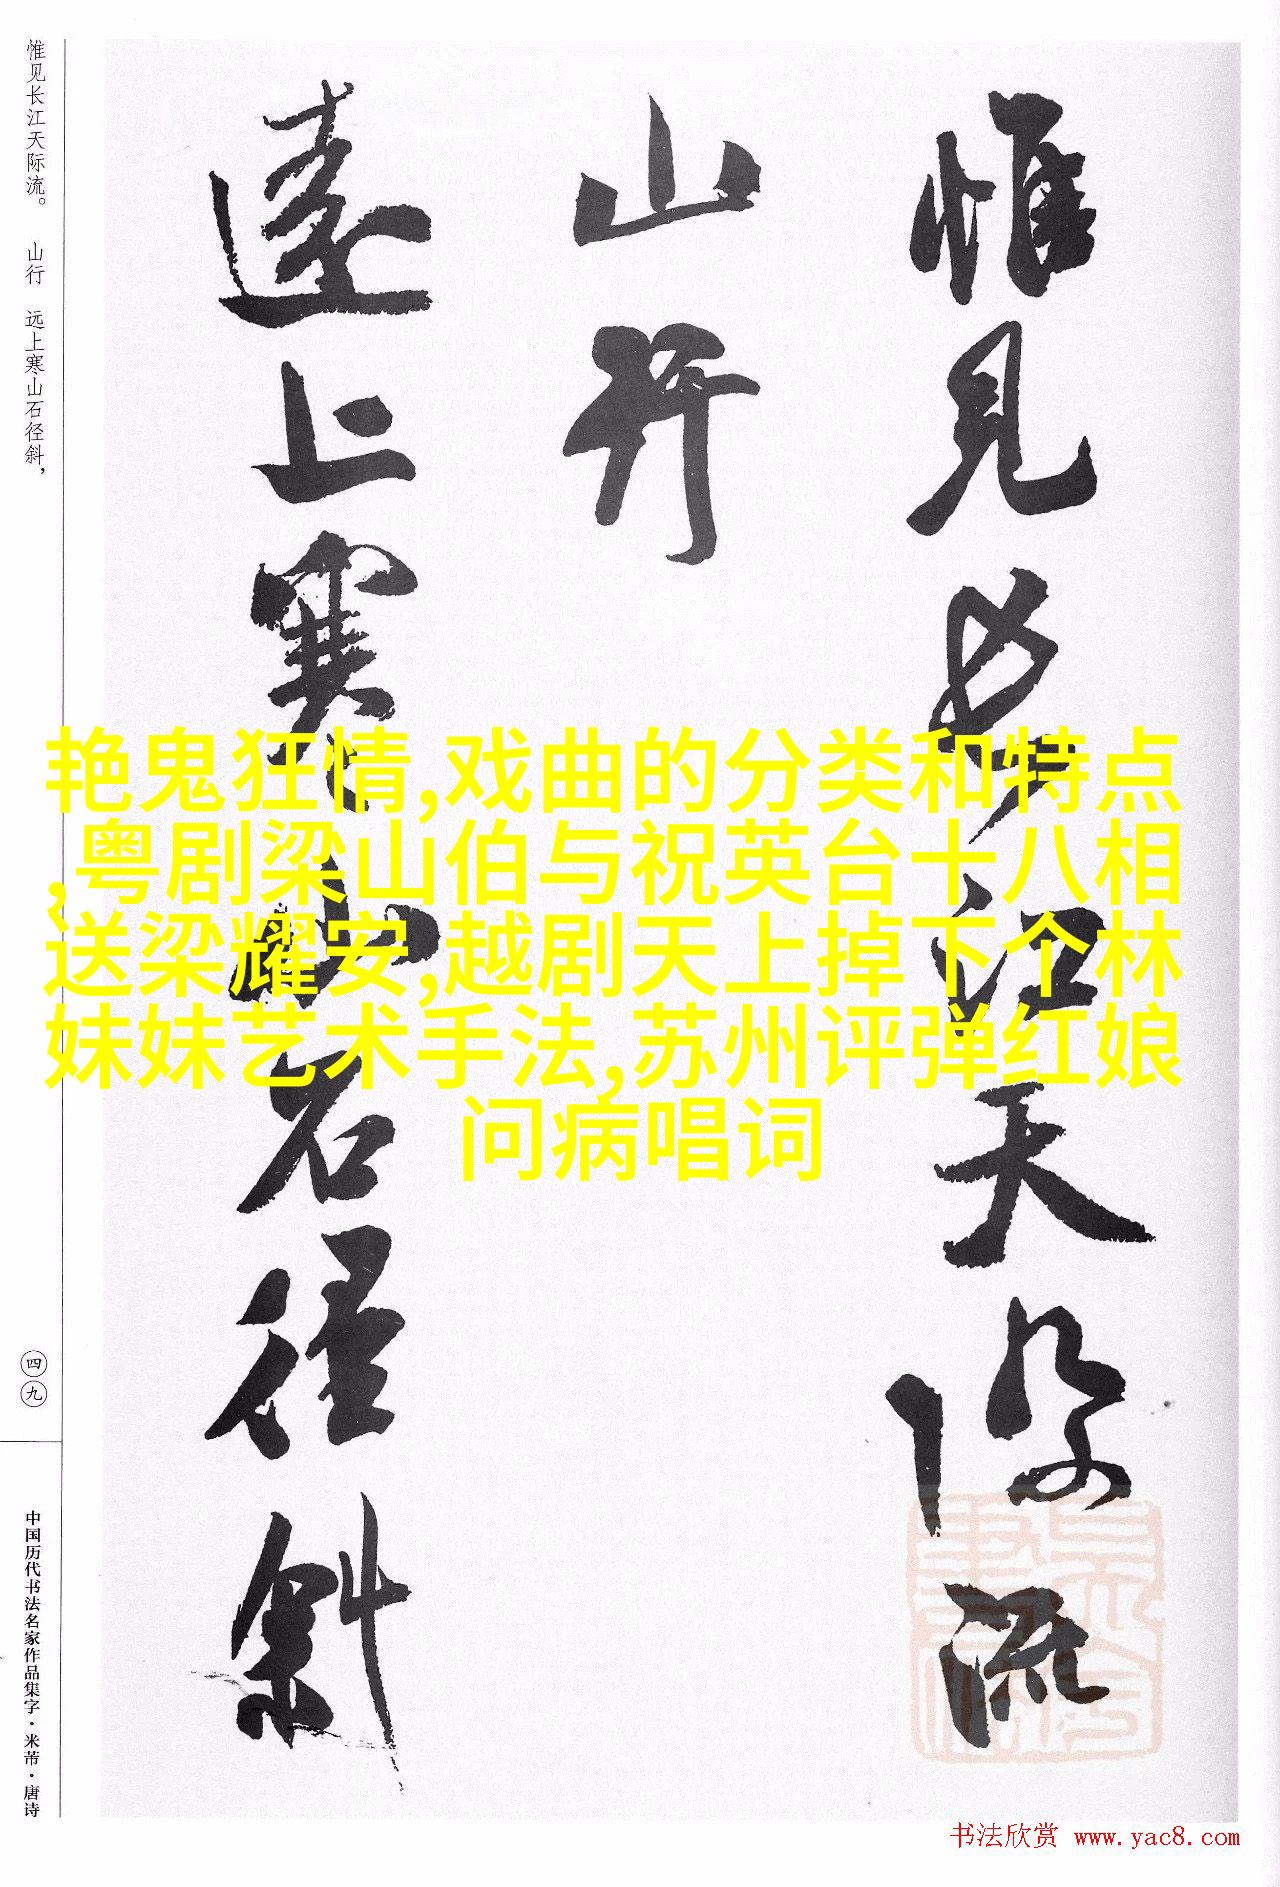 惟见长江天际流。 山行 远上寒山石径斜，
惟見長江天際流
山行
遠上寒山石径斜
艳鬼狂情,戏曲的分类和特点
,粤剧梁山伯与祝英台十八相
送梁耀安,越剧天上掉下个林
妹妹艺术手法,苏州评弹红娘
问病唱词
四九
中国历代书法名家作品集字·米芾·唐诗
书法欣赏 www.yac8.com